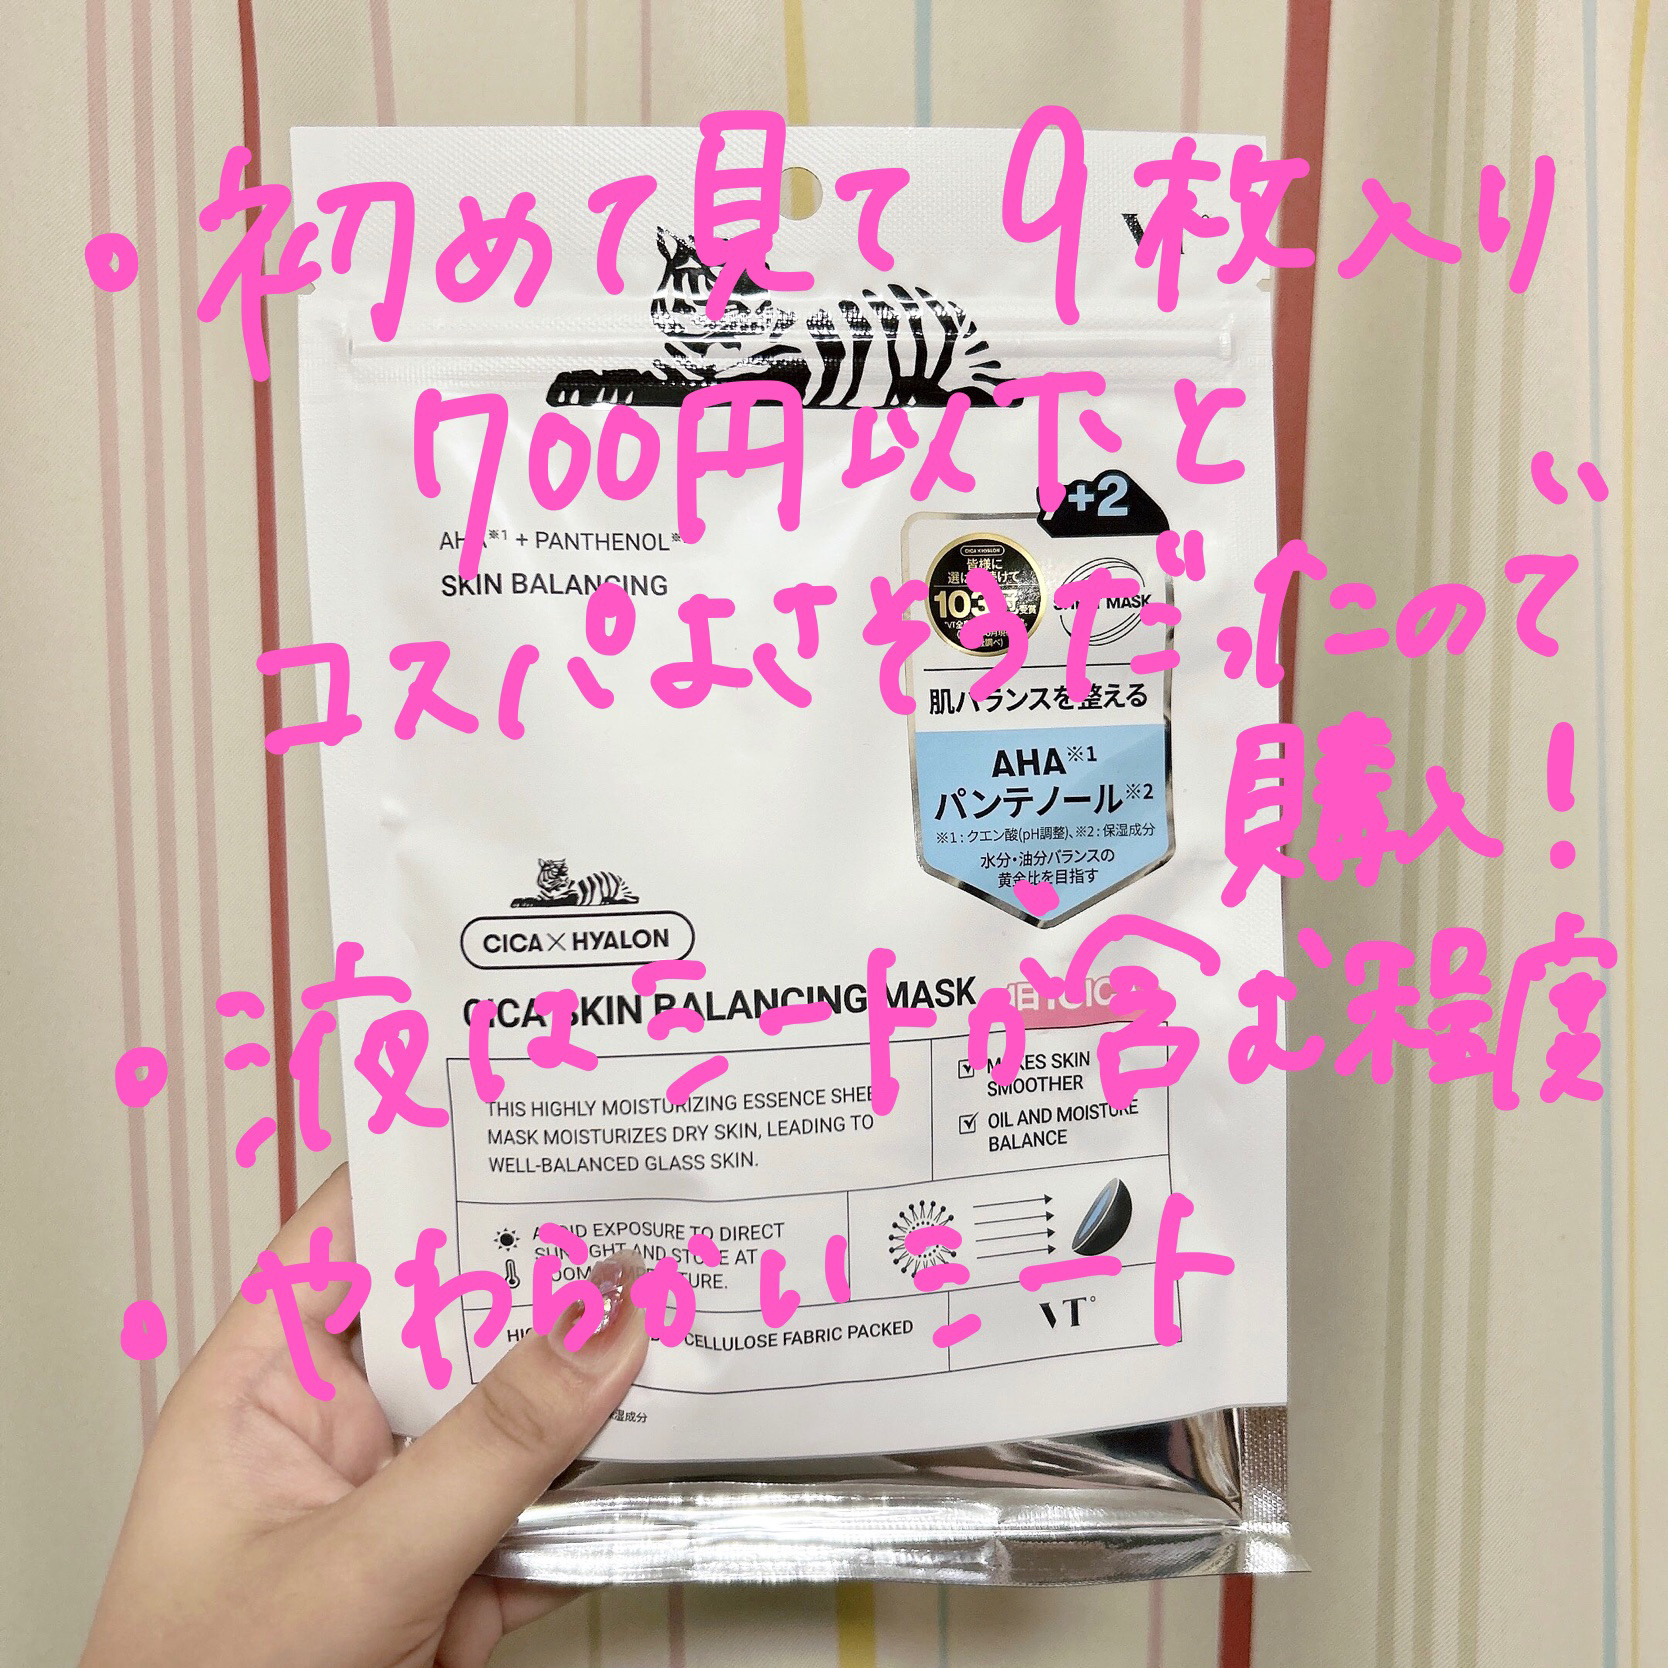 ・初めて見て 9枚入り
VT
700円以下と
+2
AHA※1 + PANTHENOL※
SKIN BALANCING
CICA×HYALON
皆様に
コスパよさそうだったので
購入!
肌バランスを整える
AHA※1
パンテノール※2
※1:クエン酸(pH調整)、※2:保湿成分
水分・油分バランスの
黄金比を目指す
CICA×HYALON
CICA SKIN BALANCING MASK
・液はシートが含む程度
THIS HIGHLY MOISTURIZING ESSENCE SHEET
MASK MOISTURIZES DRY SKIN, LEADING TO
WELL-BALANCED GLASS SKIN.
MAKES SKIN
SMOOTHER
OIL AND MOISTURE
BALANCE
AVOID EXPOSURE TO DIRECT
SUNLIGHT AND STORE AT
ROOM TEMPERATURE.
・やわらかいシート
CELLULOSE FABRIC PACKED
VT°
保湿成分